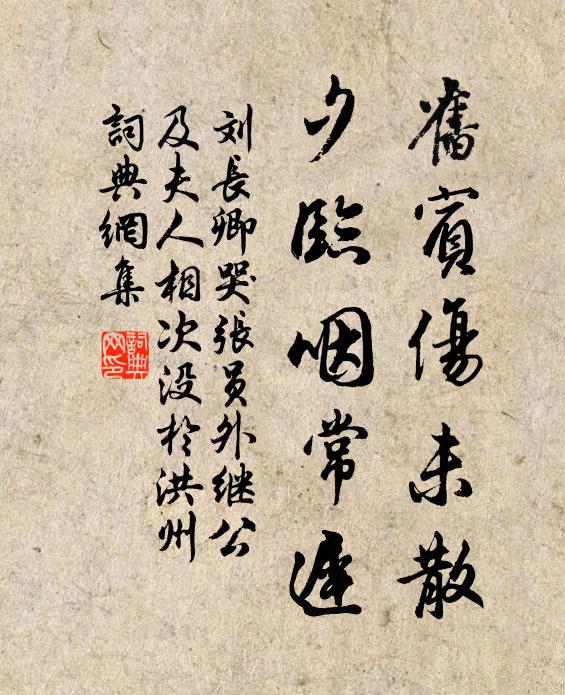 舊賓傷未散
夕臨咽常遲
刘長卿哭張员外继公
及夫人相次没於洪州
詞典網集
詞典
网印